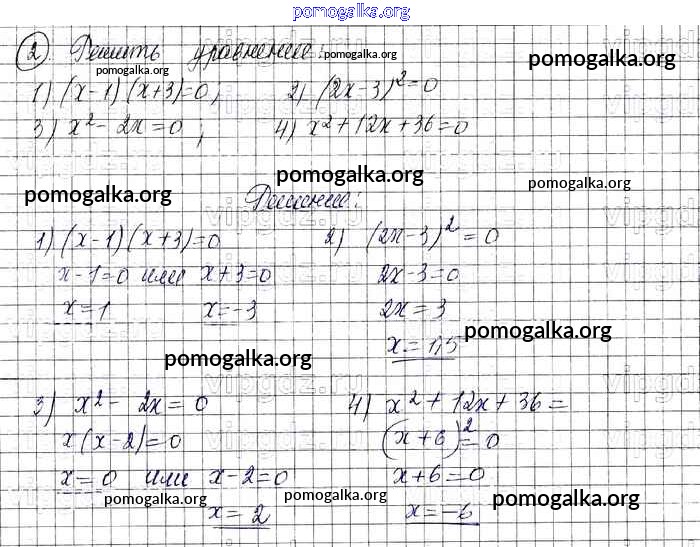 pomogalka.org
2). Решить уравнение: pomogalka.org
pomogalka.org
pomogalka.org
1) (x-1)(x+3)=0, 2) (2x-3)²=0
3) x²- 2x=0; 4) x²+12x+36=0
pomogalka.org
pomogalka.org
pomogalka.org
Решение:
vipgdz.ru
1) (x-1)(x+3)=0 2) (2x-3)²=0
x-1=0 или x+3=0 2x-3=0
x=1 x=-3 2x=3
x=1,5 pomogalka.org
pomogalka.org
vipgdz.ru
3) x²- 2x=0 4) x²+12x+36=
x(x-2)=0 (x+6)²=0
x=0 или x-2=0 x+6=0
pomogalka.org pomogalka.org pomogalka.org
x=2 x=-6